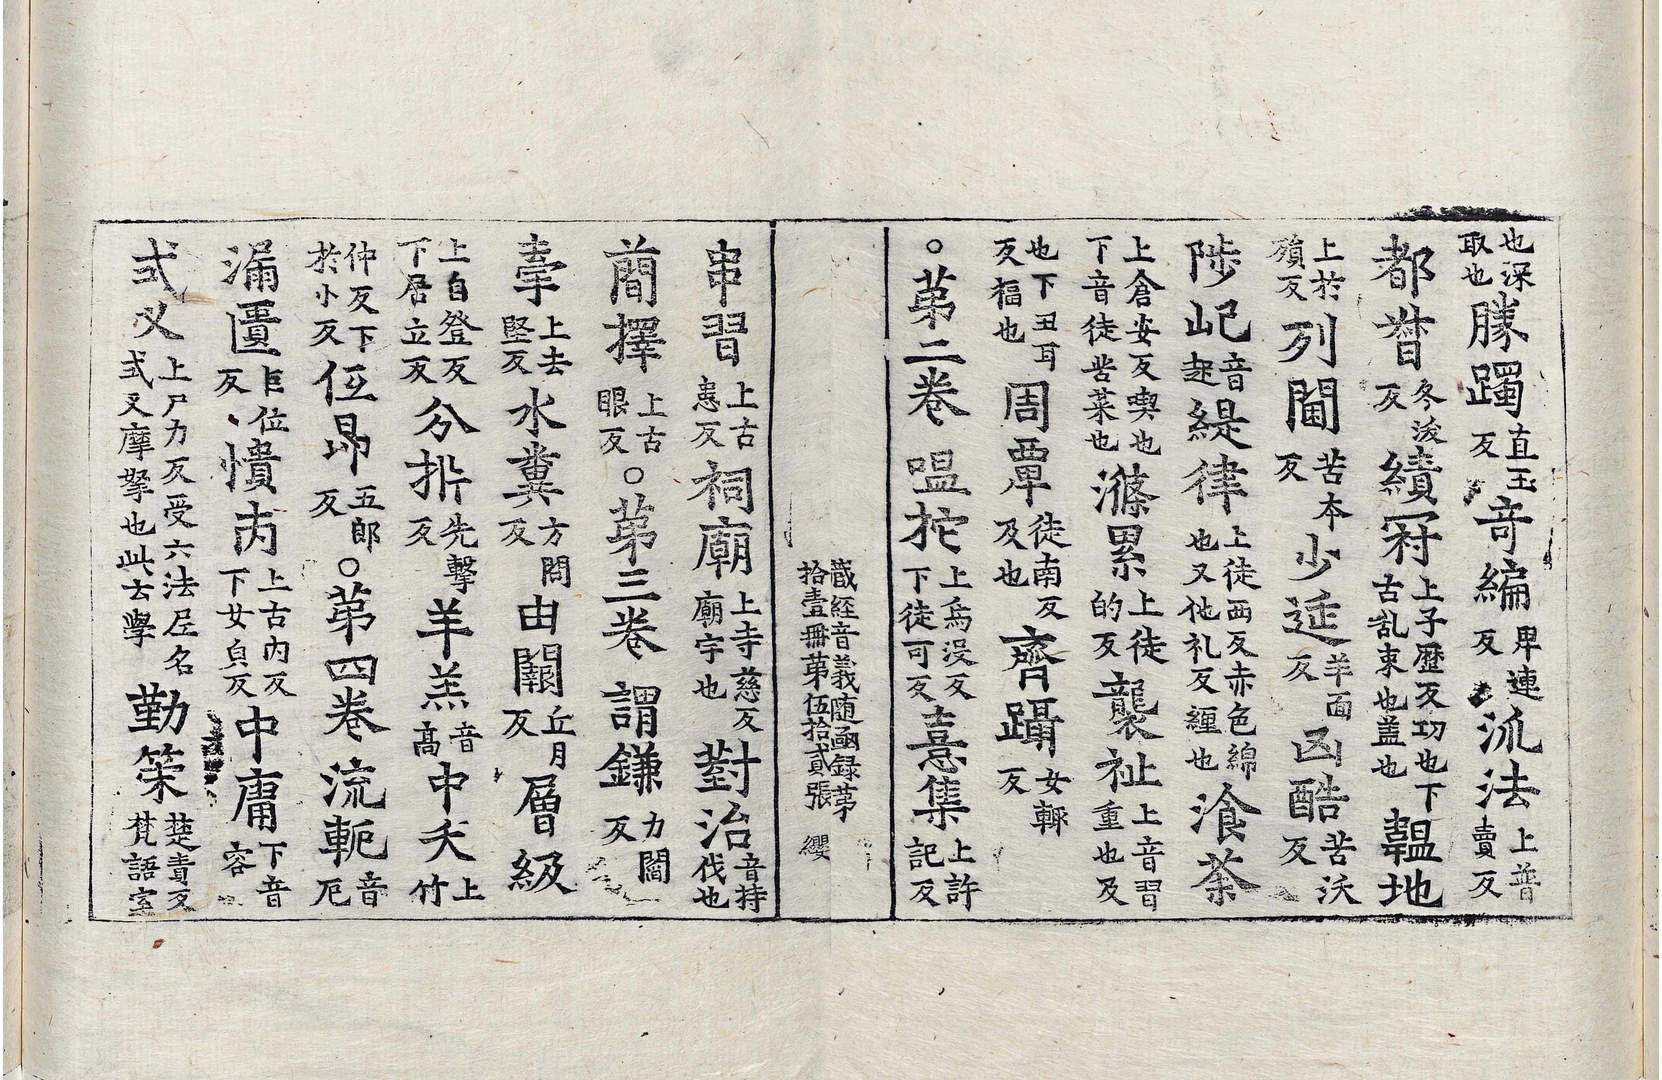 也深取也縢躅直玉反竒編卑連反泒法上普賣反
都瞀冬泼反績𡨥上子歷反功也下古乱束也盖也韞地
上於殞反列閫苦本反少𨒂羊面反凶酷苦沃反
陟屺音起緹律上徒西反赤色綿也又他礼反纏也飡荼
上倉安反喫也下音徒苦菜也滌累上徒的反襲祉上音習重也及
也下丑耳反福也周覃徒南反及也齊躡女輙反
○苐二卷嗢拕上烏没反下徒可反憙集上許記反
藏經音義随函録苐拾壹冊苐伍拾貳張 纓
串習上古患反祠廟上寺慈反廟宇也對治音持伐也
蕳擇上古眼反○苐三卷謂鎌力閻反
牽上去堅反水糞方問反由闚丘月反層級
上自登反下居立反分㭊先擊反羊羔音高中夭上竹
仲反下於小反伍昴五郎反○苐四卷流軛音厄
漏匱巨位反憒丙上古内反下女貞反中庸下音容
式叉上尸力反受六法尼名式叉摩拏也此云學勤策楚責反梵語室